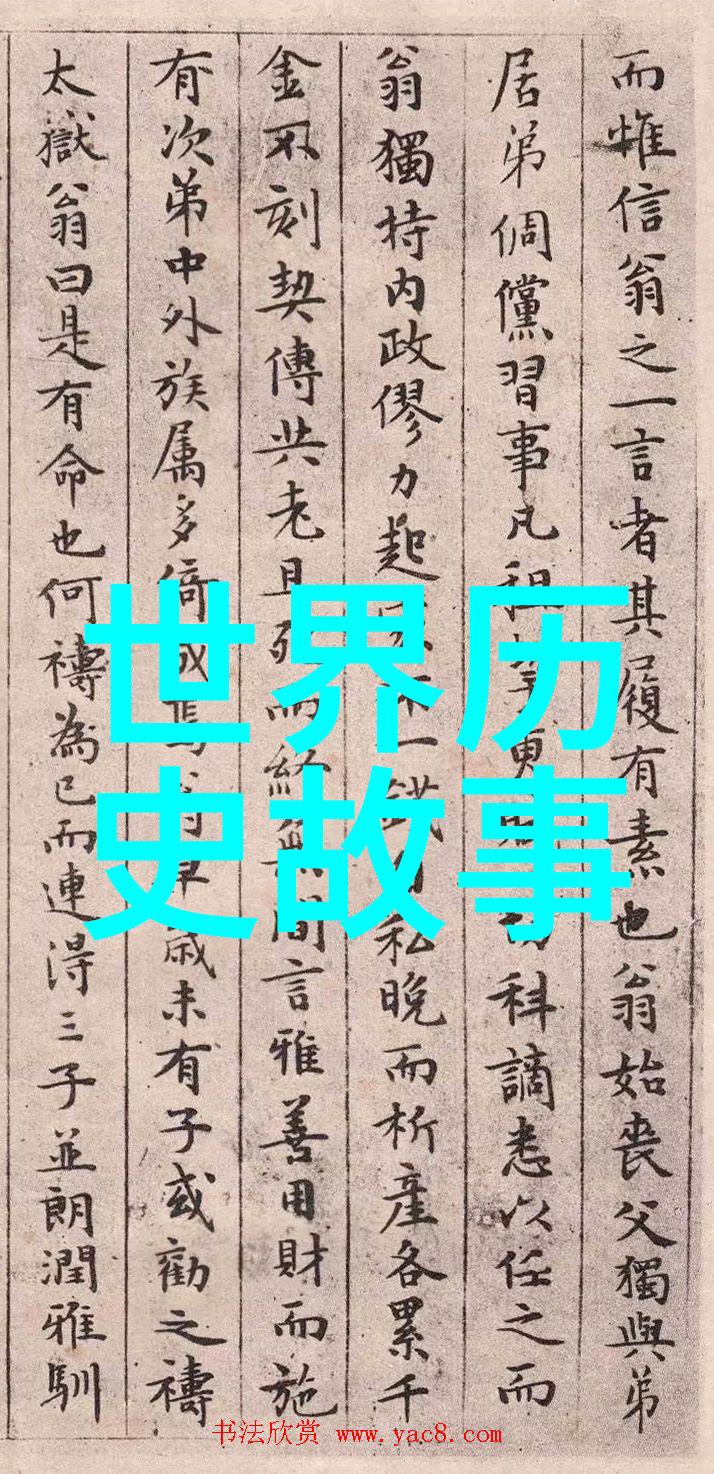 而惟信翁之一言者其履有素也翁始丧父獨與弟
居弟倜儻習事凡租科謫悉以任之而
翁獨持内政僇力起一錢私晚而析産各累千
金不刻契傳共老且無間言雅善用財而施
有次弟中外族属多歲未有子或勸之禱
太嶽翁曰是有命也何禱為已而連得三子並朗潤雅馴
世界历
史故事
书法欣赏 www.yac8.com